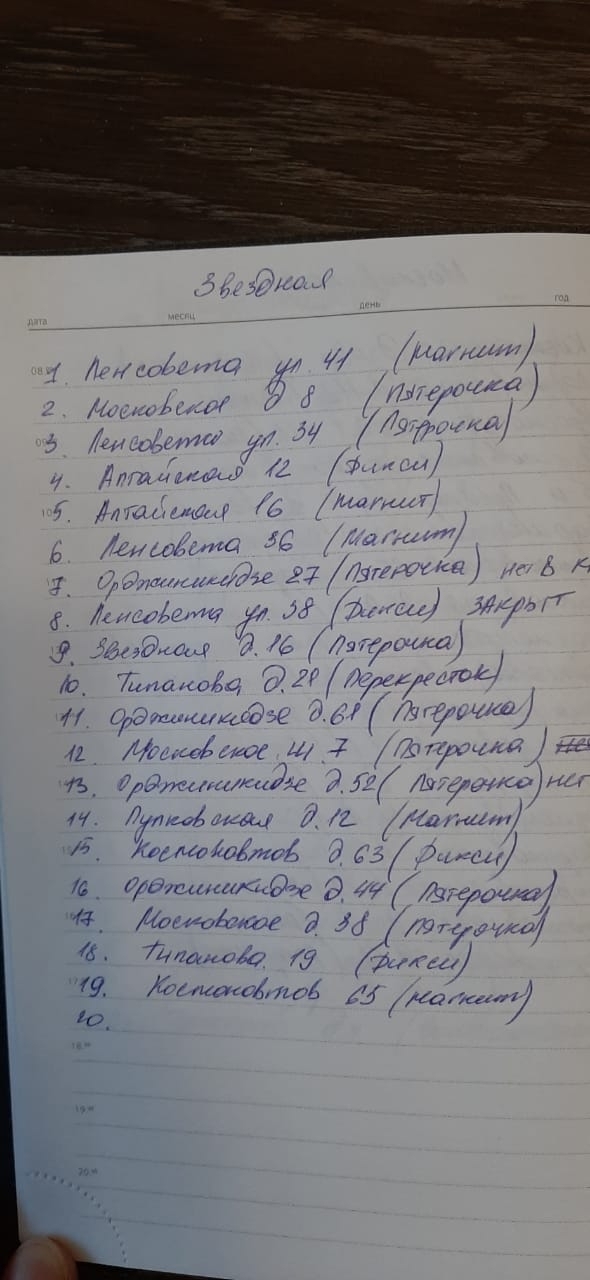 Звездная
дата месяц день год
1. Ленсовета ул. 41 (Магнит)
2. Московское д 8 (Пятерочка)
3. Ленсовета ул. 34 (Пятерочка)
4. Алтайская 12 (Фикси)
5. Алтайская 16 (Магнит)
6. Ленсовета 36 (Магнит)
7. Орджиникидзе 27 (Пятерочка) нет в
8. Ленсовета ул. 38 (Фикси) ЗАКРЫТ
9. Звездная д. 16 (Пятерочка)
10. Типанова, д. 21 (Перекресток)
11. Орджиникидзе д. 61 (Пятерочка)
12. Московское ш 7 (Пятерочка)
13. Орджиникидзе д. 52 (Пятерочка) нет
14. Пулковская д. 12 (Магнит)
15. Космонавтов д. 63 (Фикси)
16. Орджиникидзе д. 44 (Пятерочка)
17. Московское д. 38 (Пятерочка)
18. Типанова 19 (Фикси)
19. Космонавтов 65 (Магнит)
20.
18.00
19.00
20.00